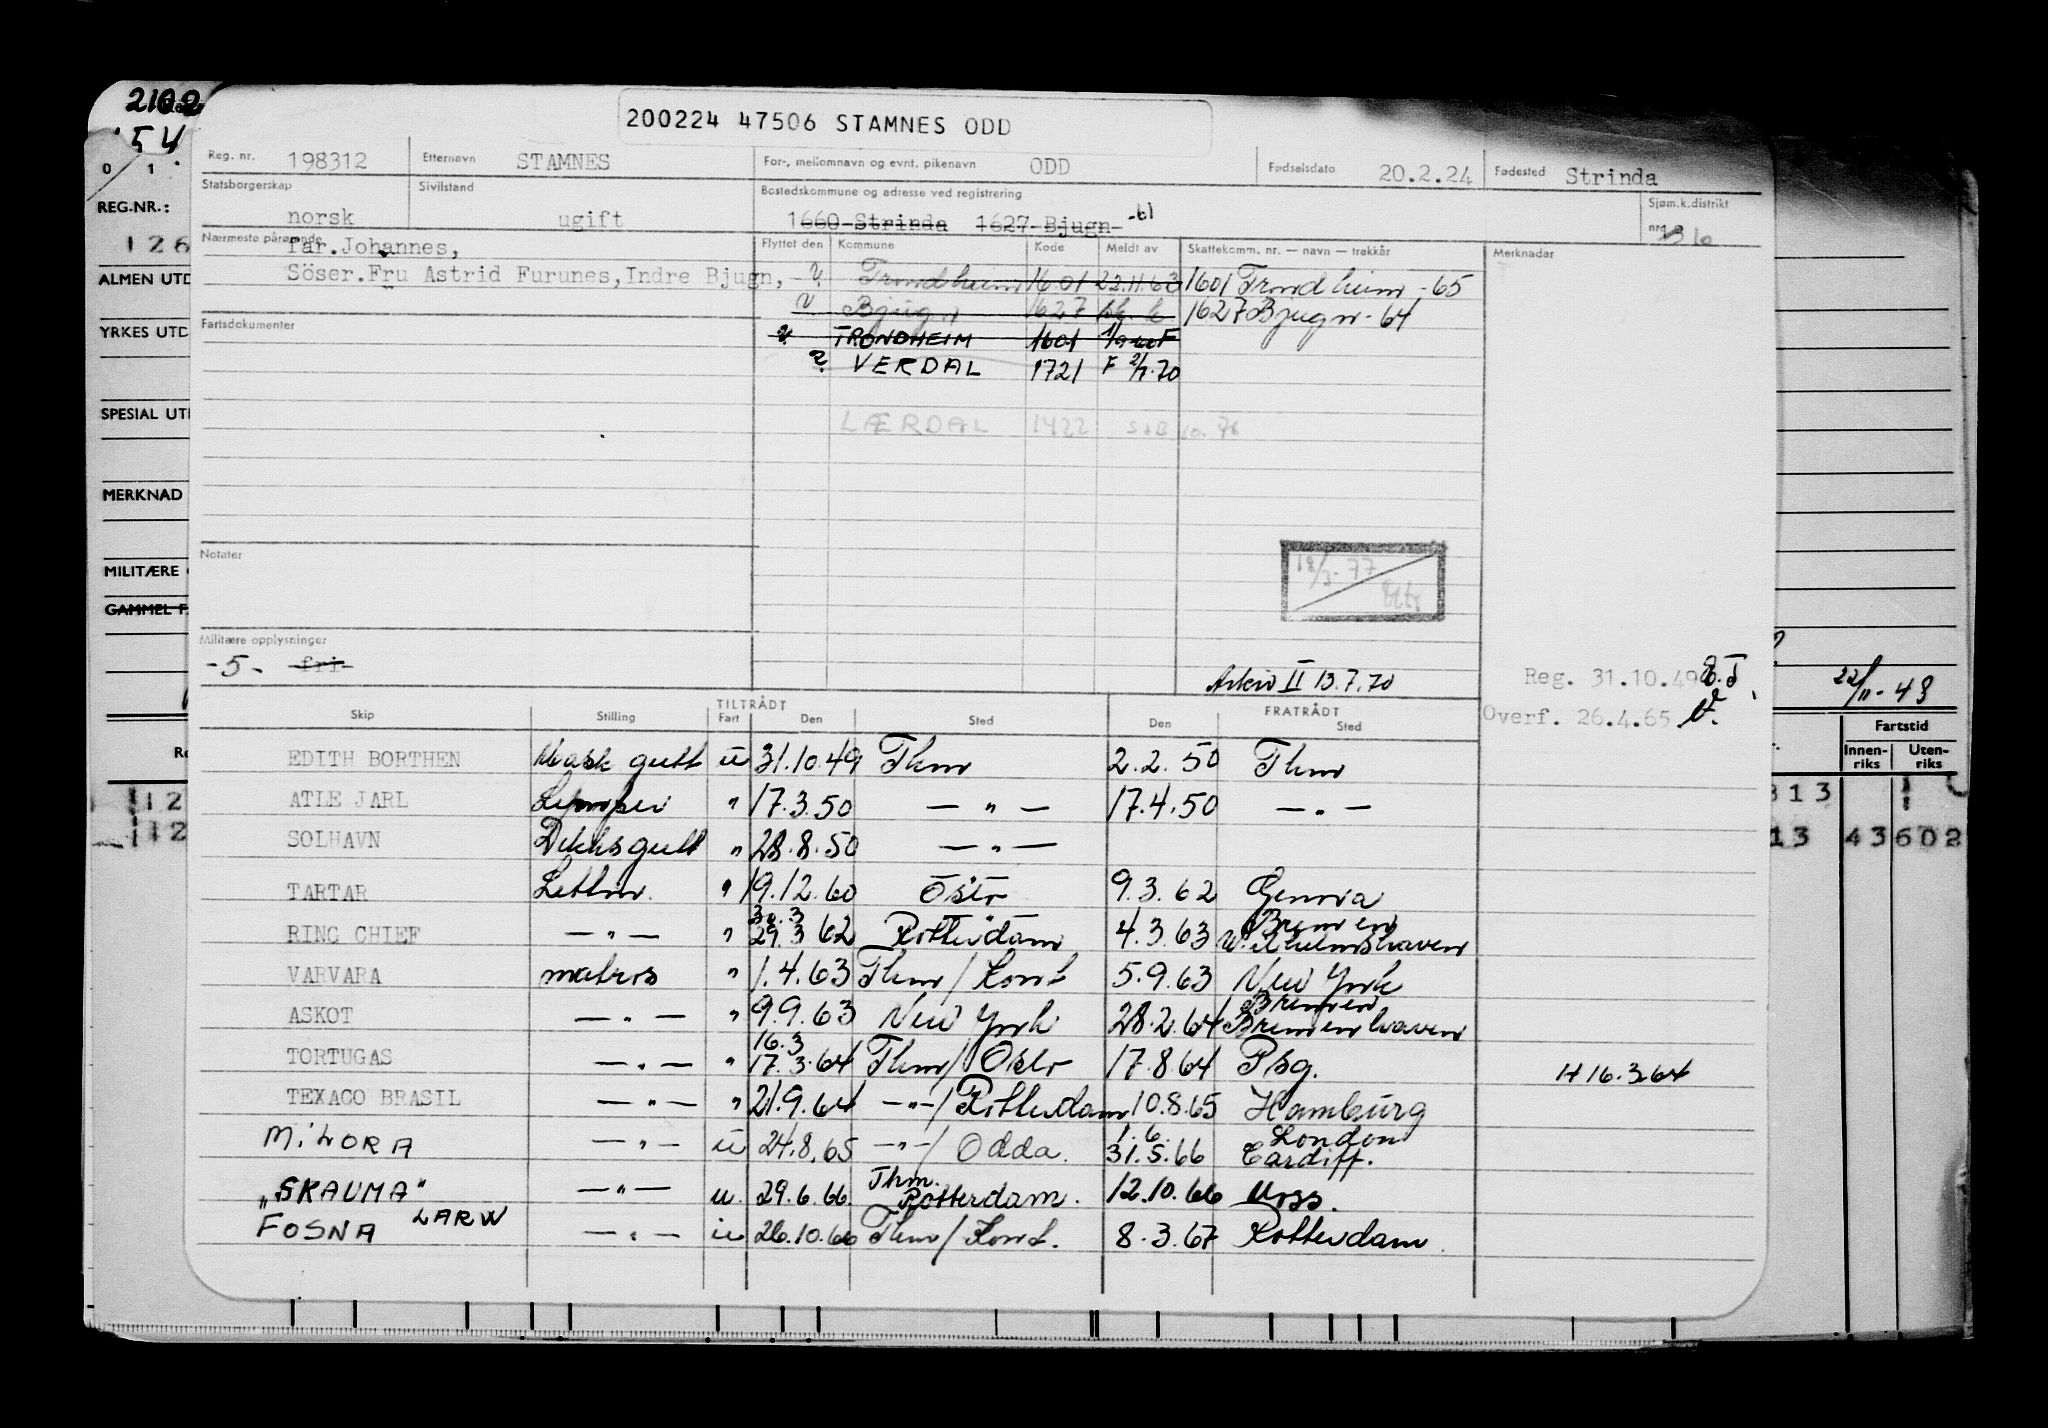 2102
54
0 1
REG.NR.:
126
ALMEN UTD
YRKES UTD
SPESIAL UTD
MERKNAD
MILITÆRE
GAMMEL F
200224 47506 STAMNES ODD
Reg. nr. 198312 Etternavn STAMNES For-, mellomnavn og evnt. pikenavn ODD Fødselsdato 20.2.24 Fødested Strinda
Statsborgerskap norsk Sivilstand ugift Bostedskommune og adresse ved registrering 1660 Strinda 1627 Bjugn Sjøm.k.distrikt nr.
Nærmeste pårørende Far.Johannes, Flyttet den Kommune Kode Meldt av Skattekomm. nr. — navn — trekkår Merknader
Söser.Fru Astrid Furunes,Indre Bjugn, Trondheim 1601 22.11.63 1601 Trondheim -65
Bjugn 1627 1627 Bjugn - 64
Fartsdokumenter TRONDHEIM 1601
VERDAL 1721 F 2/7.70
LÆRDAL 1422 10.76
Notater
18/3-77
Militære opplysninger
-5- fri-
Arkiv II 13.7.70
Reg. 31.10.49 E.T
Overf. 26.4.65
22/11-48
TILTRÅDT FRATRÅDT
Skip Stilling Fart Den Sted Den Sted
EDITH BORTHEN Mask gutt u 31.10.49 Thm 2.2.50 Thm
ATLE JARL Lemper " 17.3.50 — " — 17.4.50 — " —
SOLHAVN Dekksgutt " 28.8.50 — " —
TARTAR Lettm. " 19.12.60 Oslo 9.3.62 Genova
RING CHIEF — " — " 30.3 29.3 62 Rotterdam 4.3.63 Bremen Wilhelmshaven
VARVARA matros " 1.4.63 Thm / 5.9.63 New York
ASKOT — " — " 9.9.63 New York 28.2.64 Bremen Bremenhaven
TORTUGAS — " — " 16.3 17.3.64 Thm / Oslo 17.8.64 Psg. H 16.3.64
TEXACO BRASIL — " — " 21.9.64 — " — / Rotterdam 10.8.65 Hamburg
MiLORA — " — u 24.8.65 — " — / Odda. 1.6. 31.5.66 London Cardiff.
„SKAUMA" — " — u. 29.6.66 Thm. Rotterdam. 12.10.66 Moss.
FOSNA LARW — " — u 26.10.66 Thm / 8.3.67 Rotterdam
Fartstid
Innenriks Utenriks
12 313
12 13 43602